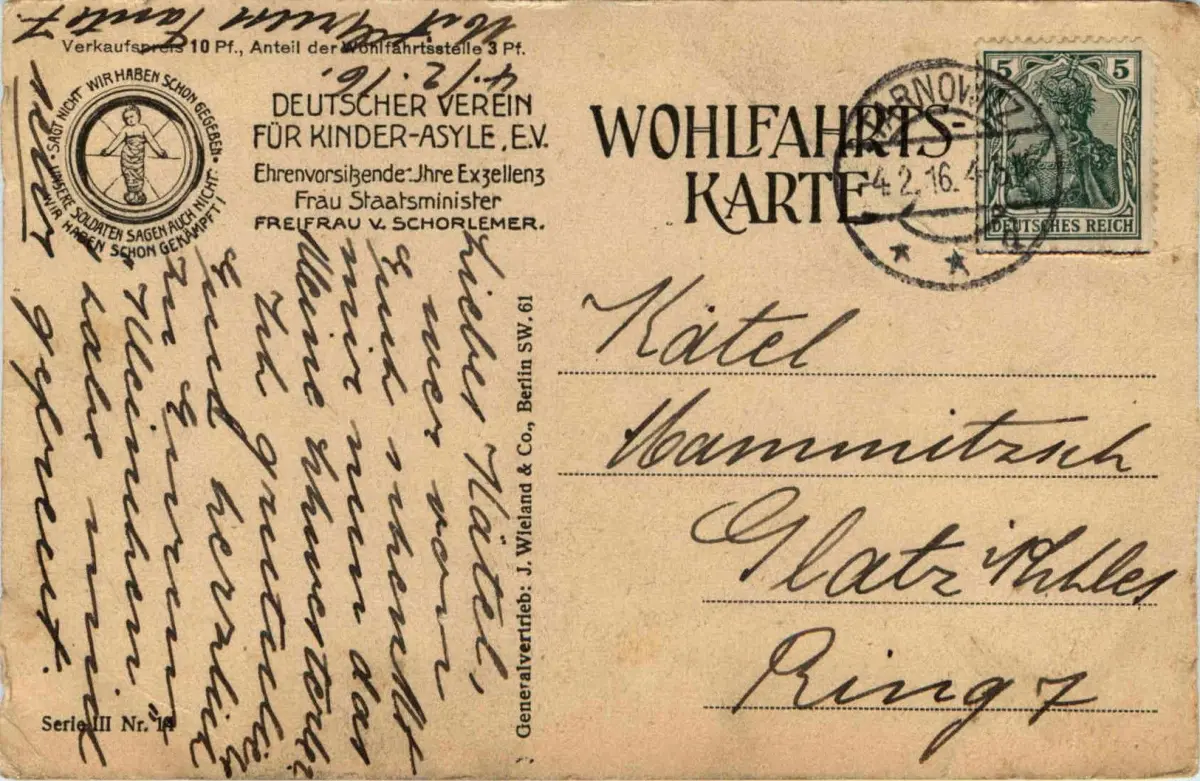 Verkaufspreis 10 Pf., Anteil der Wohlfahrtsstelle 3 Pf.
SAGT NICHT WIR HABEN SCHON GEGEBEN
UNSERE SOLDATEN SAGEN AUCH NICHT:
WIR HABEN SCHON GEKÄMPFT!
DEUTSCHER VEREIN
FÜR KINDER-ASYLE, E.V.
Ehrenvorsitzende: Ihre Exzellenz
Frau Staatsminister
FREIFRAU V. SCHORLEMER.
WOHLFAHRTS-
KARTE
TARNOWITZ
4.2.16. 4-5
5 5
DEUTSCHES REICH
Kätel
Hammitzsch
Glatz i/Schles
Ring 7
4./2.16.
Lieber Kätel,
wer von
Euch schenkt
mir nun das
kleine Schwesterle?
Ich gratuliere
Euch herzlich
zu Eurem
"Kleinchen"
habe mich
sehr
gefreut.
Mit Gruss Tante F.
Generalvertrieb: J. Wieland & Co., Berlin SW. 61
Serie III Nr. 14